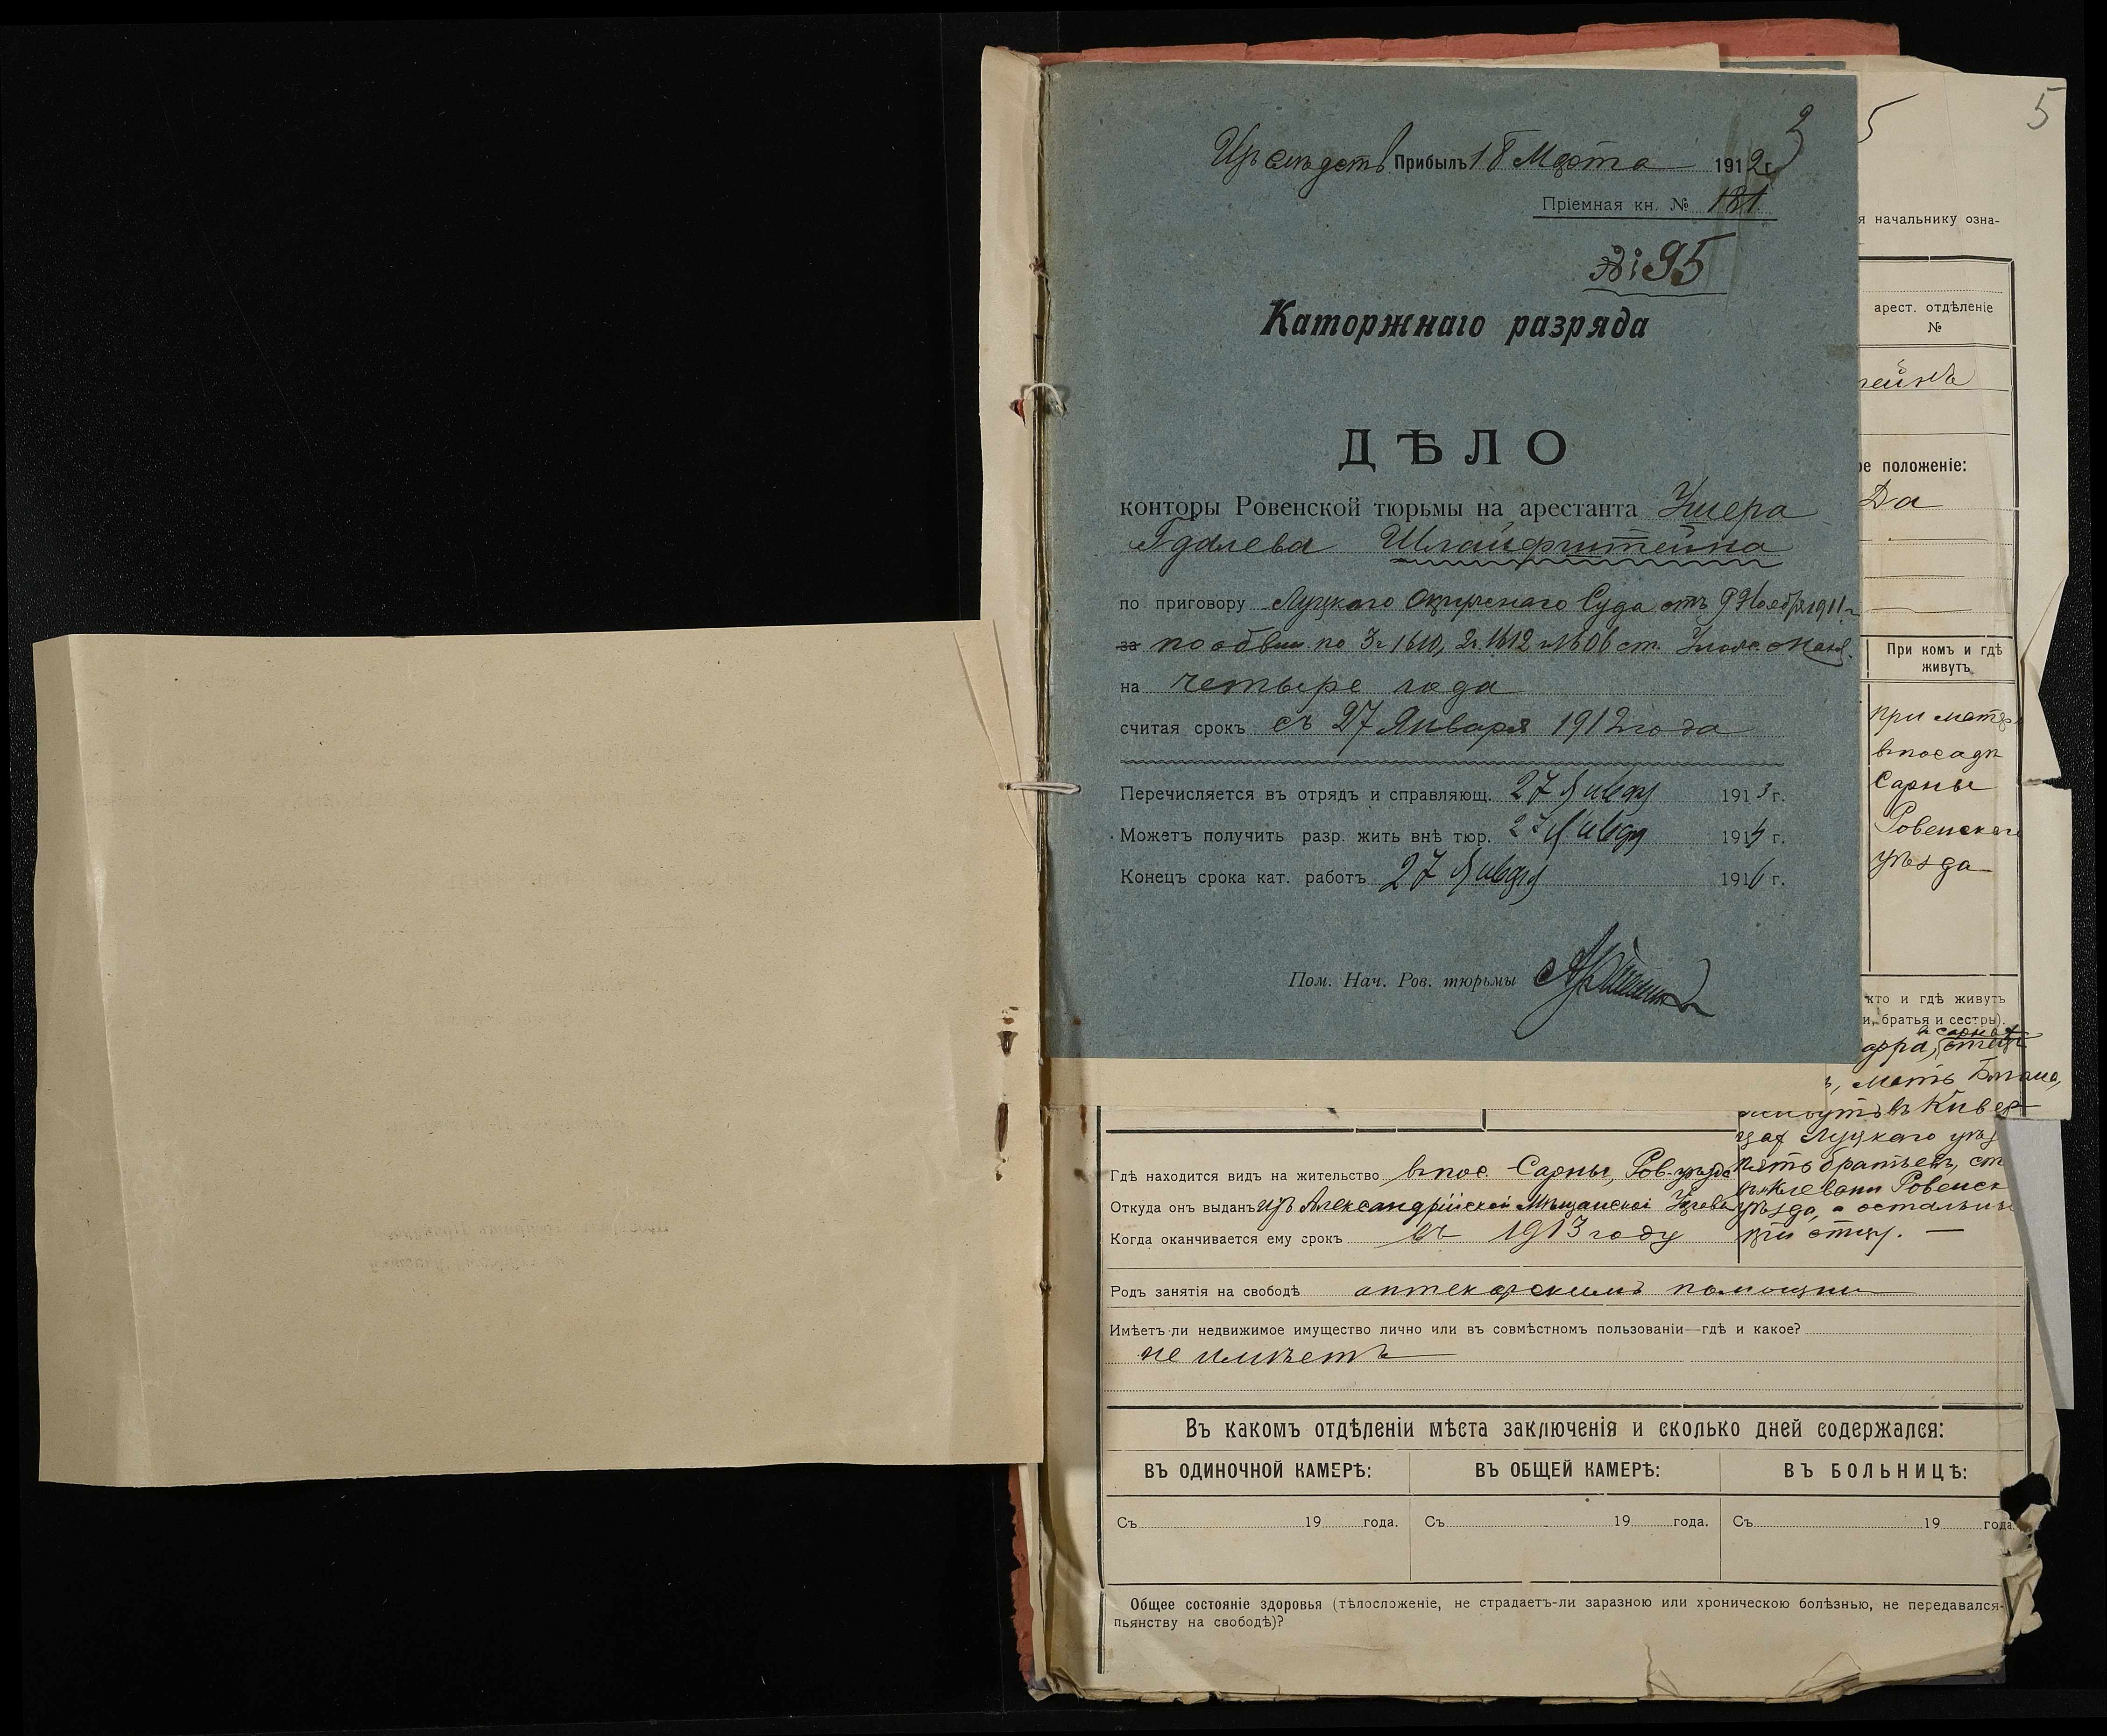 3
Изъ следств Прибылъ 18 Марта 1912 г.
Пріемная кн. № 181
№ 95
Каторжнаго разряда
ДѢЛО
конторы Ровенской тюрьмы на арестанта Ушера
Гдалева Шлайфштейна
по приговору Луцкаго Окружнаго Суда отъ 9 Ноября 1911 г
за по обвин по 3 ч 1610, 2 ч. 1612 и 1606 ст. Улож. о Наказ.
на четыре года
считая срокъ съ 27 Января 1912 года
Перечисляется въ отрядъ и справляющ. 27 Января 1913 г.
Можетъ получить разр. жить внѣ тюр. 27 Января 1914 г.
Конецъ срока кат. работъ 27 Января 1916 г.
Пом. Нач. Ров. тюрьмы
5
5
я начальнику озна-
арест. отдѣленіе
№
тейнъ
ое положеніе:
Да
При комъ и гдѣ
живутъ
при матер
въ посадѣ
Сарны
Ровенскаго
уѣзда
кто и гдѣ живутъ
и, братья и сестры).
отецъ
мать
живутъ въ Кивер
цах Луцкаго уѣз
пять братьевъ, ст
въ Клевани Ровенск
уѣзда, а остальны
при отцу. —
Гдѣ находится видъ на жительство въ пос. Сарны, Ров. уѣзда
Откуда онъ выданъ изъ Александрійской Мѣщанской Управы
Когда оканчивается ему срокъ въ 1913 году
Родъ занятія на свободѣ аптекарскимъ помощни
Имѣетъ-ли недвижимое имущество лично или въ совмѣстномъ пользованіи—гдѣ и какое?
не имѣетъ
Въ какомъ отдѣленіи мѣста заключенія и сколько дней содержался:
ВЪ ОДИНОЧНОЙ КАМЕРѢ: ВЪ ОБЩЕЙ КАМЕРѢ: ВЪ БОЛЬНИЦѢ:
Съ 19 года. Съ 19 года. Съ 19 года.
Общее состояніе здоровья (тѣлосложеніе, не страдаетъ-ли заразною или хроническою болѣзнью, не передавался-
пьянству на свободѣ)?